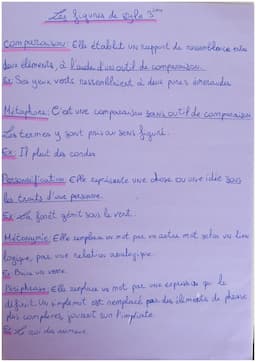 Les figures de style 3ème
Comparaison: Elle établit un rapport de ressemblance entre
deux éléments, à l'aide d'un outil de comparaison.
Ex: Ses yeux verts ressemblaient à deux pures émeraudes
Métaphore: C'est une comparaison sans outil de comparaison
Les termes y sont pris au sens figuré.
Ex: Il pleut des cordes
Personnification: Elle représente une chose ou une idée sous
les traits d'une personne.
Ex: La forêt gémit sous le vent.
Métonymie: Elle remplace un mot par un autre mot selon un lien
logique, par une relation analogique.
Ex: Boire un verre.
Périphrase: Elle remplace un mot par une expression qui le
définit. Un simple mot est remplacé par des éléments de phrase
plus complexes, jouant sur l'implicite.
Ex: Le roi des animaux